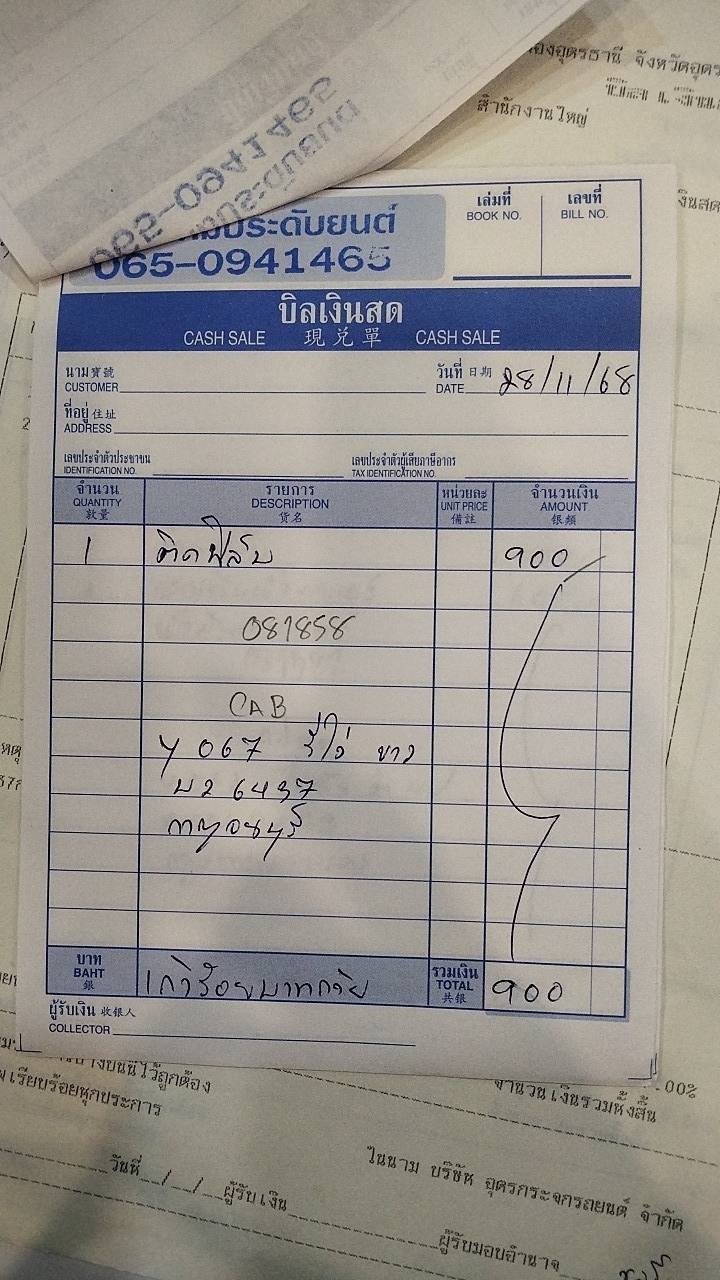 จังหวัดอุดร
สำนักงานใหญ่
065-0941465
ประดับยนต์
065-0941465
เล่มที่ เลขที่
BOOK NO. BILL NO.
บิลเงินสด
CASH SALE 現兌單 CASH SALE
นาม 寶號 วันที่ 日期
CUSTOMER DATE 28/11/68
ที่อยู่ 住址
ADDRESS
เลขประจำตัวประชาชน เลขประจำตัวผู้เสียภาษีอากร
IDENTIFICATION NO. TAX IDENTIFICATION NO.
จำนวน รายการ หน่วยละ จำนวนเงิน
QUANTITY DESCRIPTION UNIT PRICE AMOUNT
货名 備註
1 ติดฟิล์ม 900
081858
CAB
067 รีโว่ ขาว
6437
กาญจนบุรี
บาท รวมเงิน
BAHT เก้าร้อยบาทถ้วน TOTAL 900
銀 共銀
ผู้รับเงิน 收银人
COLLECTOR
ไว้ถูกต้อง
เรียบร้อยทุกประการ
.00%
จำนวนเงินรวมทั้งสิ้น
วันที่ / / ผู้รับเงิน
ในนาม บริษัท อุดรกระจกรถยนต์ จำกัด
ผู้รับมอบอำนาจ